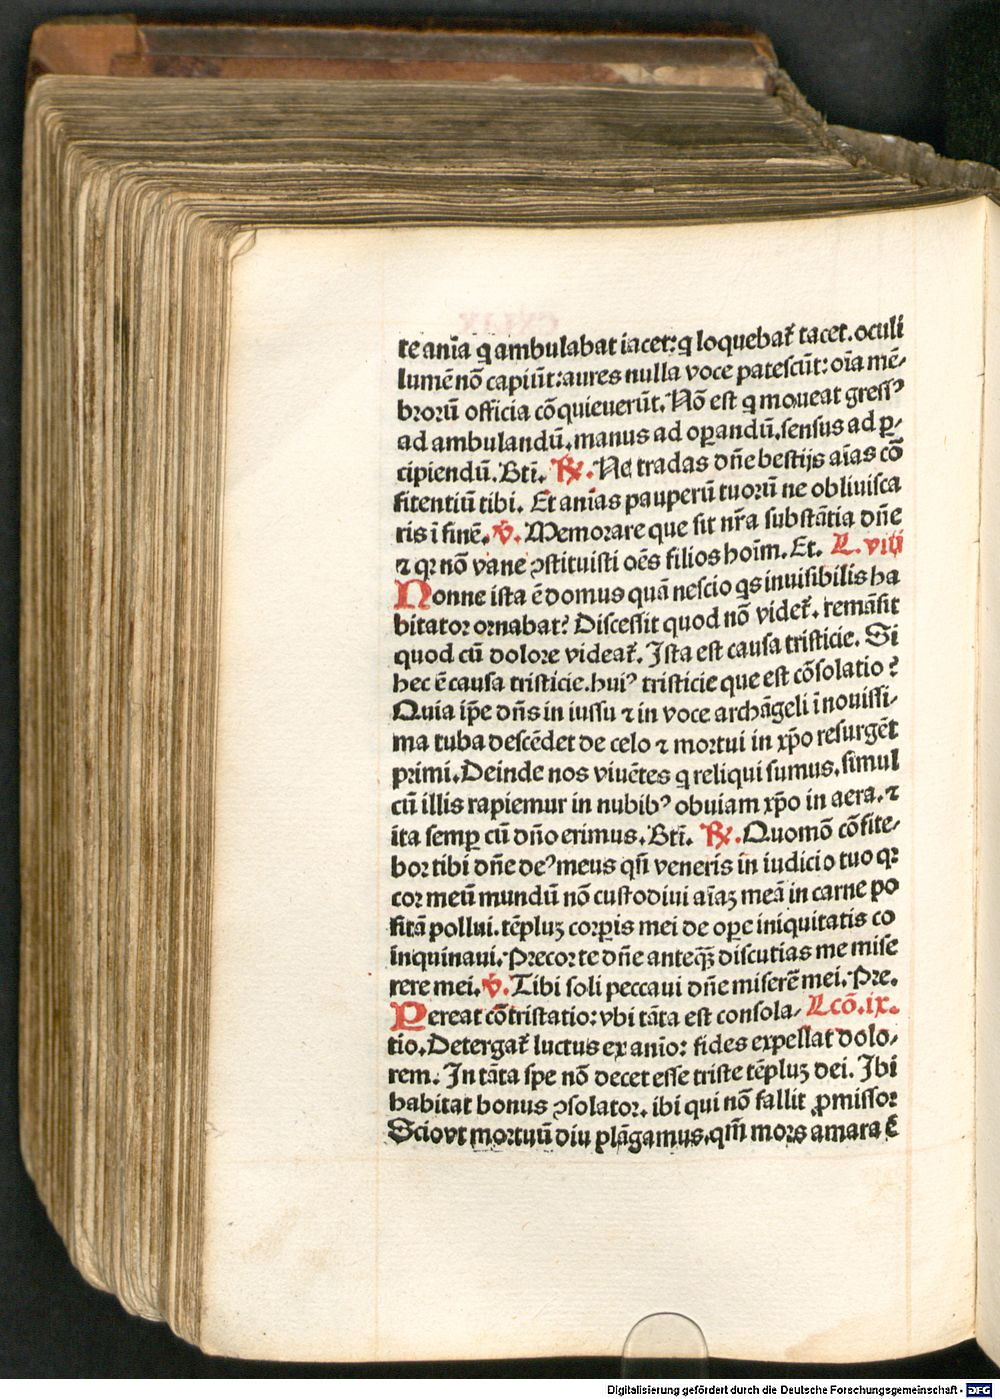 te ani̅a q̅ ambulabat iacet: q̅ loquebat᷑ tacet. oculi
lume̅ no̅ capiu̅t: aures nulla voce patescu̅t: oi̅a me̅-
broru̅ officia co̅quieueru̅t. No̅ est q̅ moueat gressꝰ
ad ambulandu̅. manus ad oꝑandu̅. sensus ad ꝑ-
cipiendu̅. Bti̅. ℟. Ne tradas dn̅e bestijs ai̅as co̅
fitentiu̅ tibi. Et ani̅as pauperu̅ tuoru̅ ne obliuisca
ris i̅ fine̅. ℣. Memorare que sit nr̅a substa̅tia dn̅e
⁊ qꝛ no̅ vane ꝯstituisti oe̅s filios hoi̅m. Et. L. viij
Nonne ista e̅ domus qua̅ nescio qs inuisibilis ha
bitator ornabat? Discessit quod no̅ videt᷑. rema̅sit
quod cu̅ dolore videat᷑. Ista est causa tristicie. Si
hec e̅ causa tristicie. huiꝰ tristicie que est co̅solatio?
Quia ip̅e dn̅s in iussu ⁊ in voce archa̅geli i̅ nouissi-
ma tuba desce̅det de celo ⁊ mortui in xp̅o resurge̅t
primi. Deinde nos viue̅tes q̅ reliqui sumus. simul
cu̅ illis rapiemur in nubibꝰ obuiam xp̅o in aera. ⁊
ita semꝑ cu̅ dn̅o erimus. Bti̅. ℟. Quomo̅ co̅fite-
bor tibi dn̅e deꝰ meus qn̅ veneris in iudicio tuo qꝛ
cor meu̅ mundu̅ no̅ custodiui ai̅aꝫ mea̅ in carne po
sita̅ pollui. te̅pluꝫ corꝑis mei de oꝑe iniquitatis co
inquinaui. Precor te dn̅e anteqꝫ̅ discutias me mise
rere mei. ℣. Tibi soli peccaui dn̅e misere̅ mei. Pre.
Pereat co̅tristatio: vbi ta̅ta est consola- Lco̅. ix.
tio. Detergat᷑ luctus ex anio̅: fides expellat dolo-
rem. In ta̅ta spe no̅ decet esse triste te̅pluꝫ dei. Ibi
habitat bonus ꝯsolator. ibi qui no̅ fallit ꝓmissor
Scio vt mortuu̅ diu pla̅gamus. qm̅ mors amara e̅
Digitalisierung gefördert durch die Deutsche Forschungsgemeinschaft - DFG